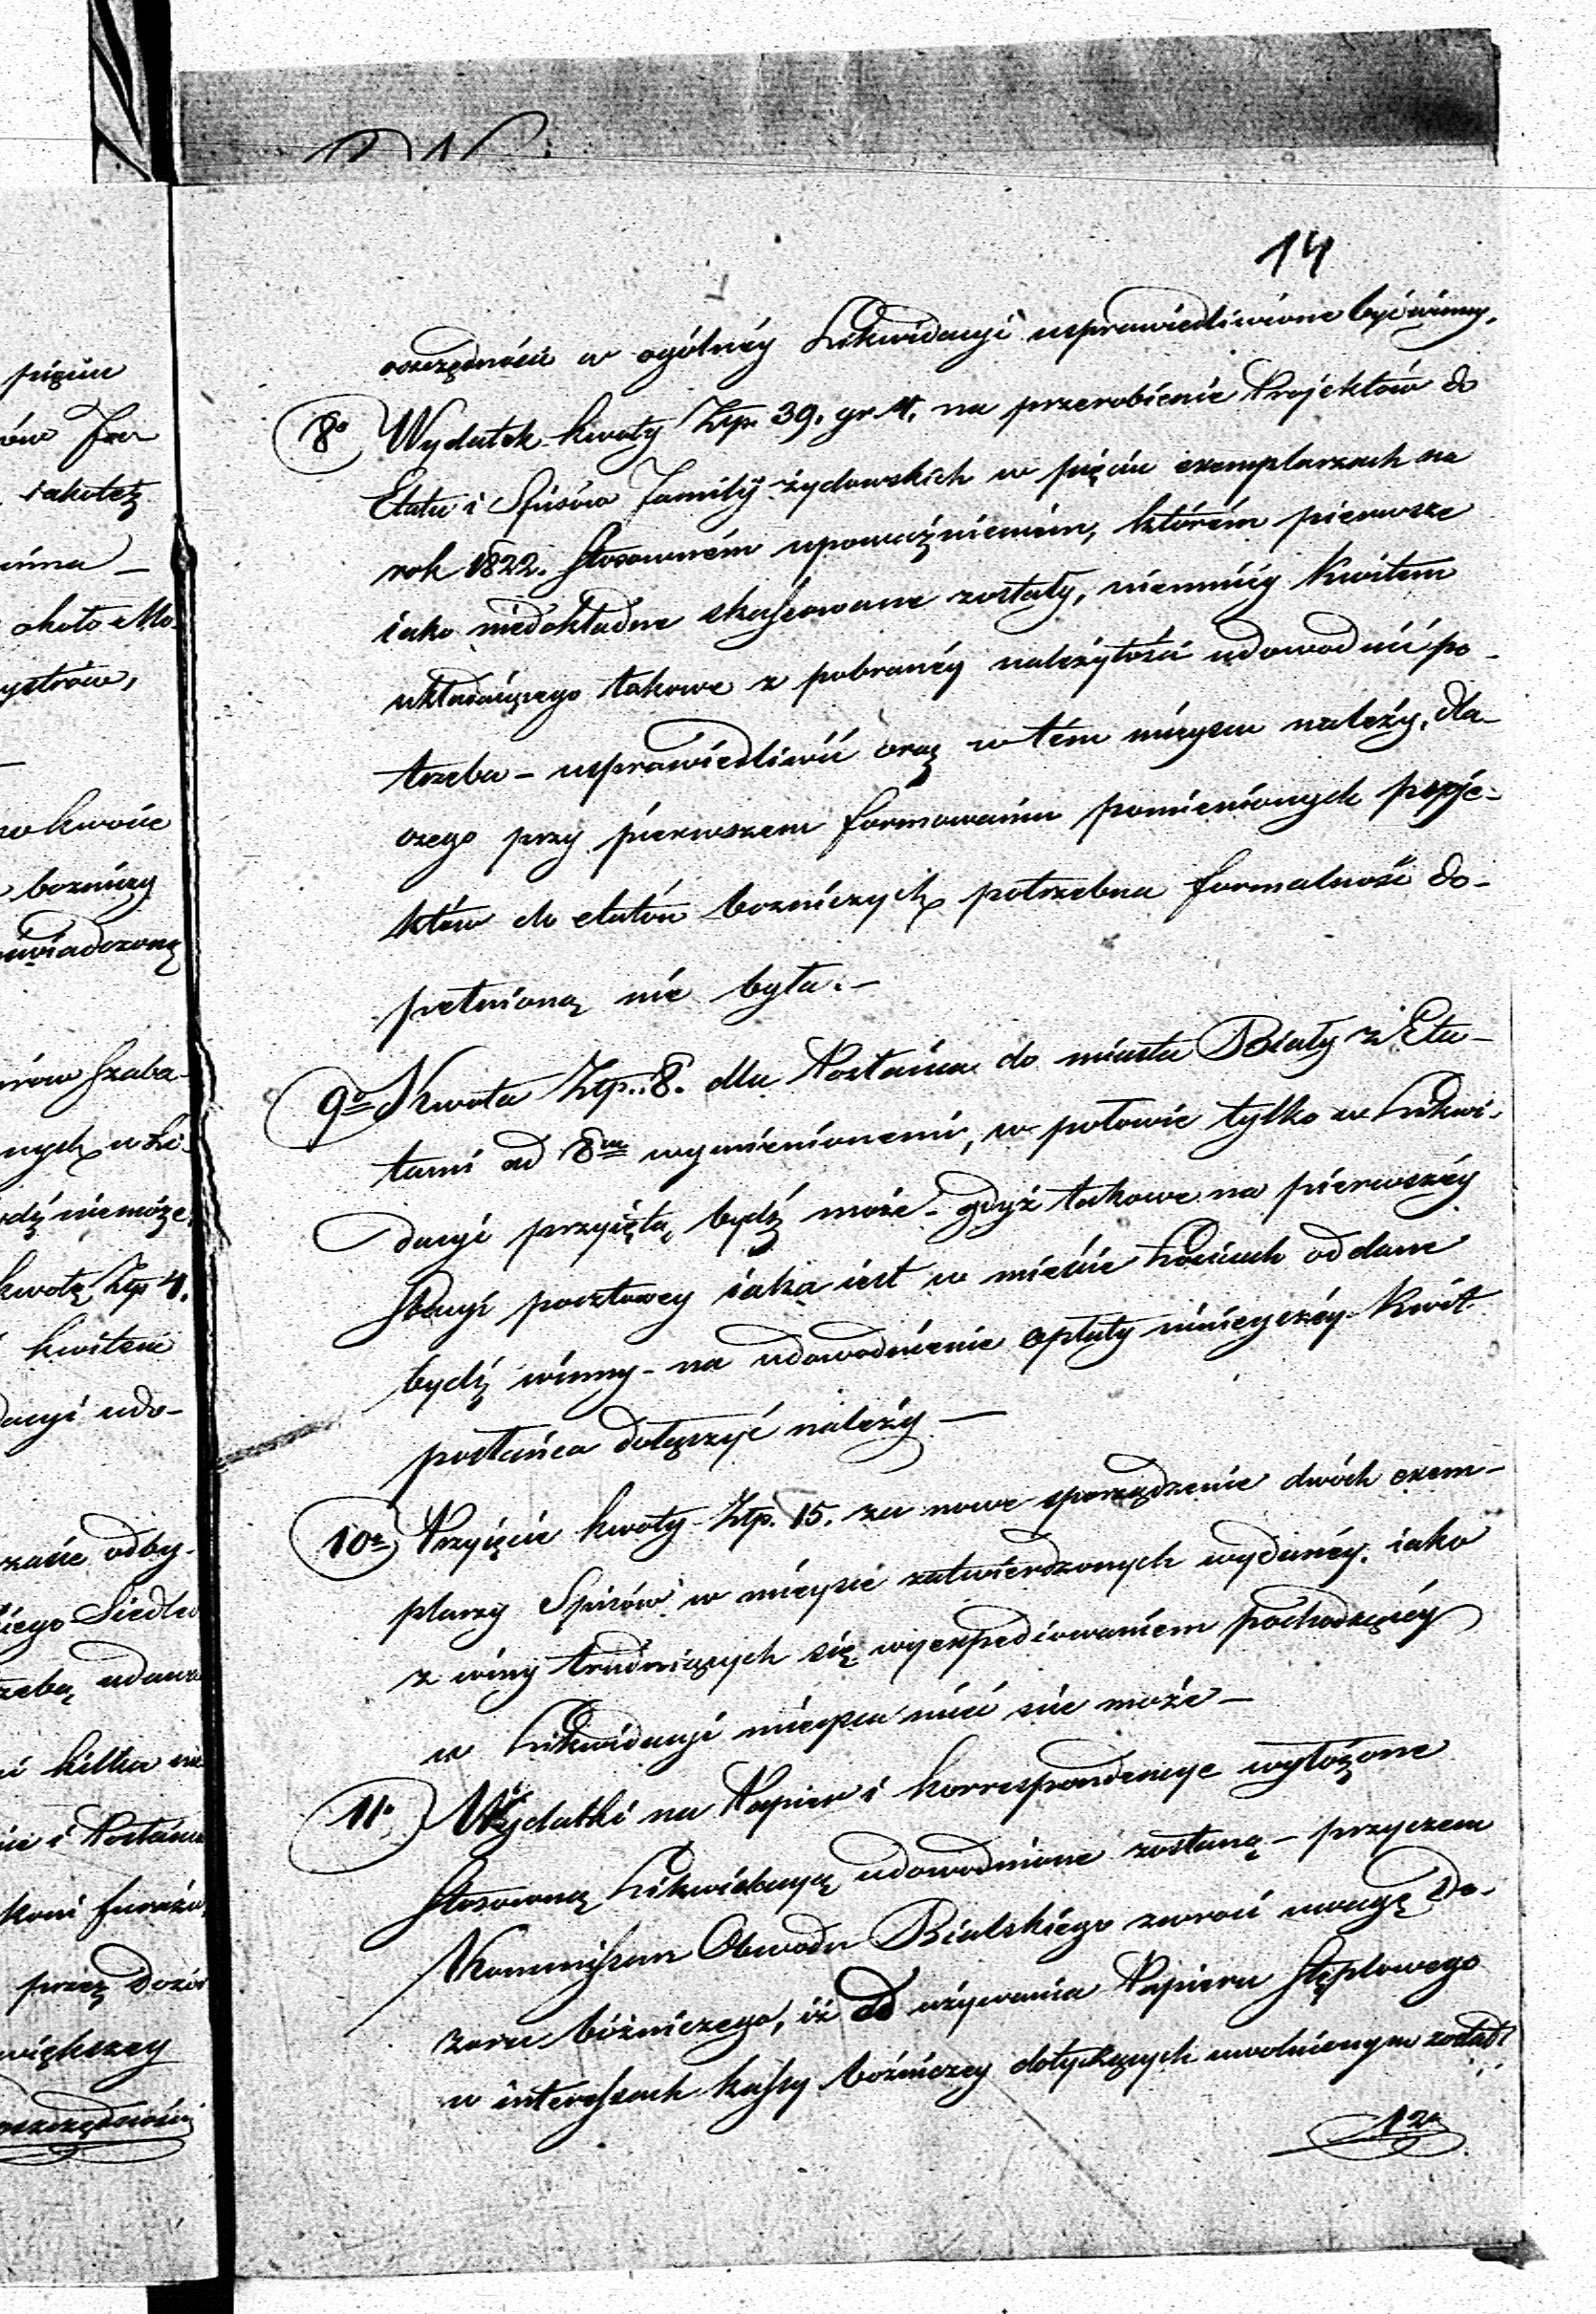 14
oszczędności w ogólney Likwidacyi usprawiedliwione być winny.
8o Wydatek kwoty Złp. 39. gr. 4. na przerobienie Projektów do
Etatu i Spisów Familij żydowskich w pięciu exemplarzach na
rok 1822. stosownem upoważnieniem, którém pierwsze
iako niedokładne skassowane zostały, niemniéy kwitem
układaiącego takowe z pobranéy należytości udowodnić po-
trzeba – usprawiedliwić oraz w tém mieyscu należy, dla-
czego przy pierwszem formowaniu pomienionych proje-
któw do etatów bozniczych potrzebna formalność do-
pełnioną nie była. –
9o Kwota Złp. 8. dla Posłańca do miasta Biały z Eta-
tami ad 8m wymienionemi, w połowie tylko w Likwi-
dacyi przyiętą bydź może – gdyż takowe na pierwszéy
Stacyi pocztowey iaka iest w mieście Łosicach oddane
bydź winny – na udowodnienie opłaty ninieyszéy kwit
posłańca dołączyć należy —
10o Przyięcie kwoty Złp. 15. za nowe sporządzenie dwóch exem-
plarzy Spisów w mieysce zatwierdzonych wydanéy, iako
z winy trudniących się wyexpediowaniem pochodzącéy
w Likwidacyi mieysca mieć nie może —
11o Wydatki na Papier i korrespondencye wyłożone
stosowną Likwidacyą udowodnione zostaną – przyczem
Kommissarz Obwodu Bialskiego zwróci uwagę Do-
zoru bóżniczego, iż od używania Papieru stęplowego
w interessach kassy bóżniczey dotyczących uwolnionym został
12o
pięciu
ów Fam
iakoteż
około Mo-
kwocie
bozniczy
Szaba-
nych w Li-
bydź niemoże,
kwotę Złp 4.
kwitem
dacyi udo-
odby-
iego Siedlec
kilka
i Posłańca
koni
przez Dozór
większey
oszczędności